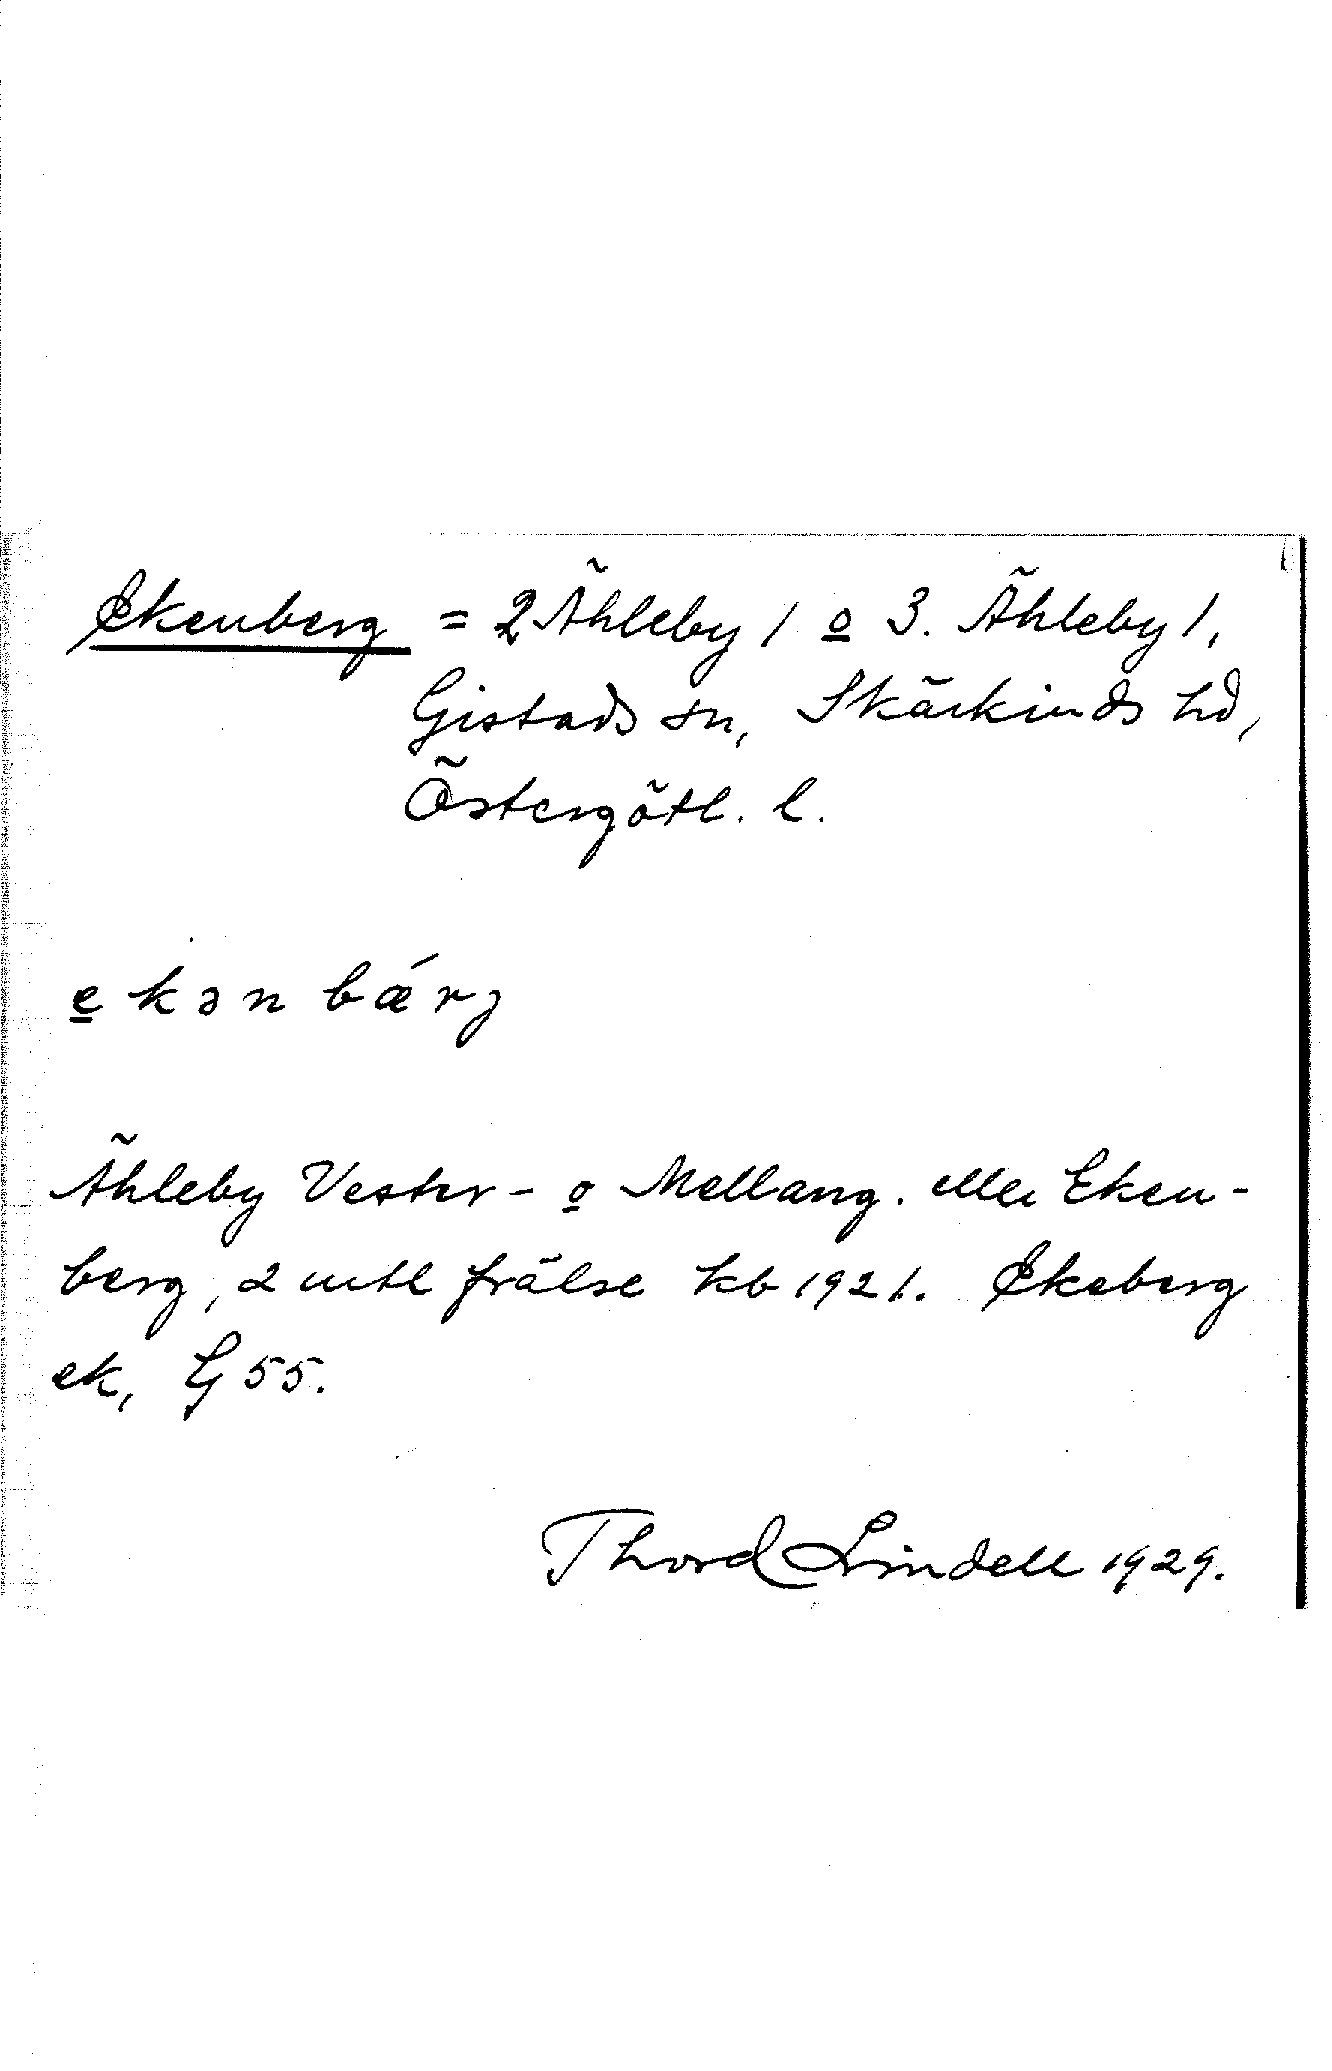 Ekenberg = 2 Ähleby 1 o 3. Ähleby 1,
Gistads sn, Skärkinds hd,
Östergötl. l.
e k ə n b ǽ r j
Ähleby Vester- o Mellang. eller Eken-
berg, 2 mtl frälse kb 1921. Ekeberg
ek, G 55.
Thord Lindell 1929.